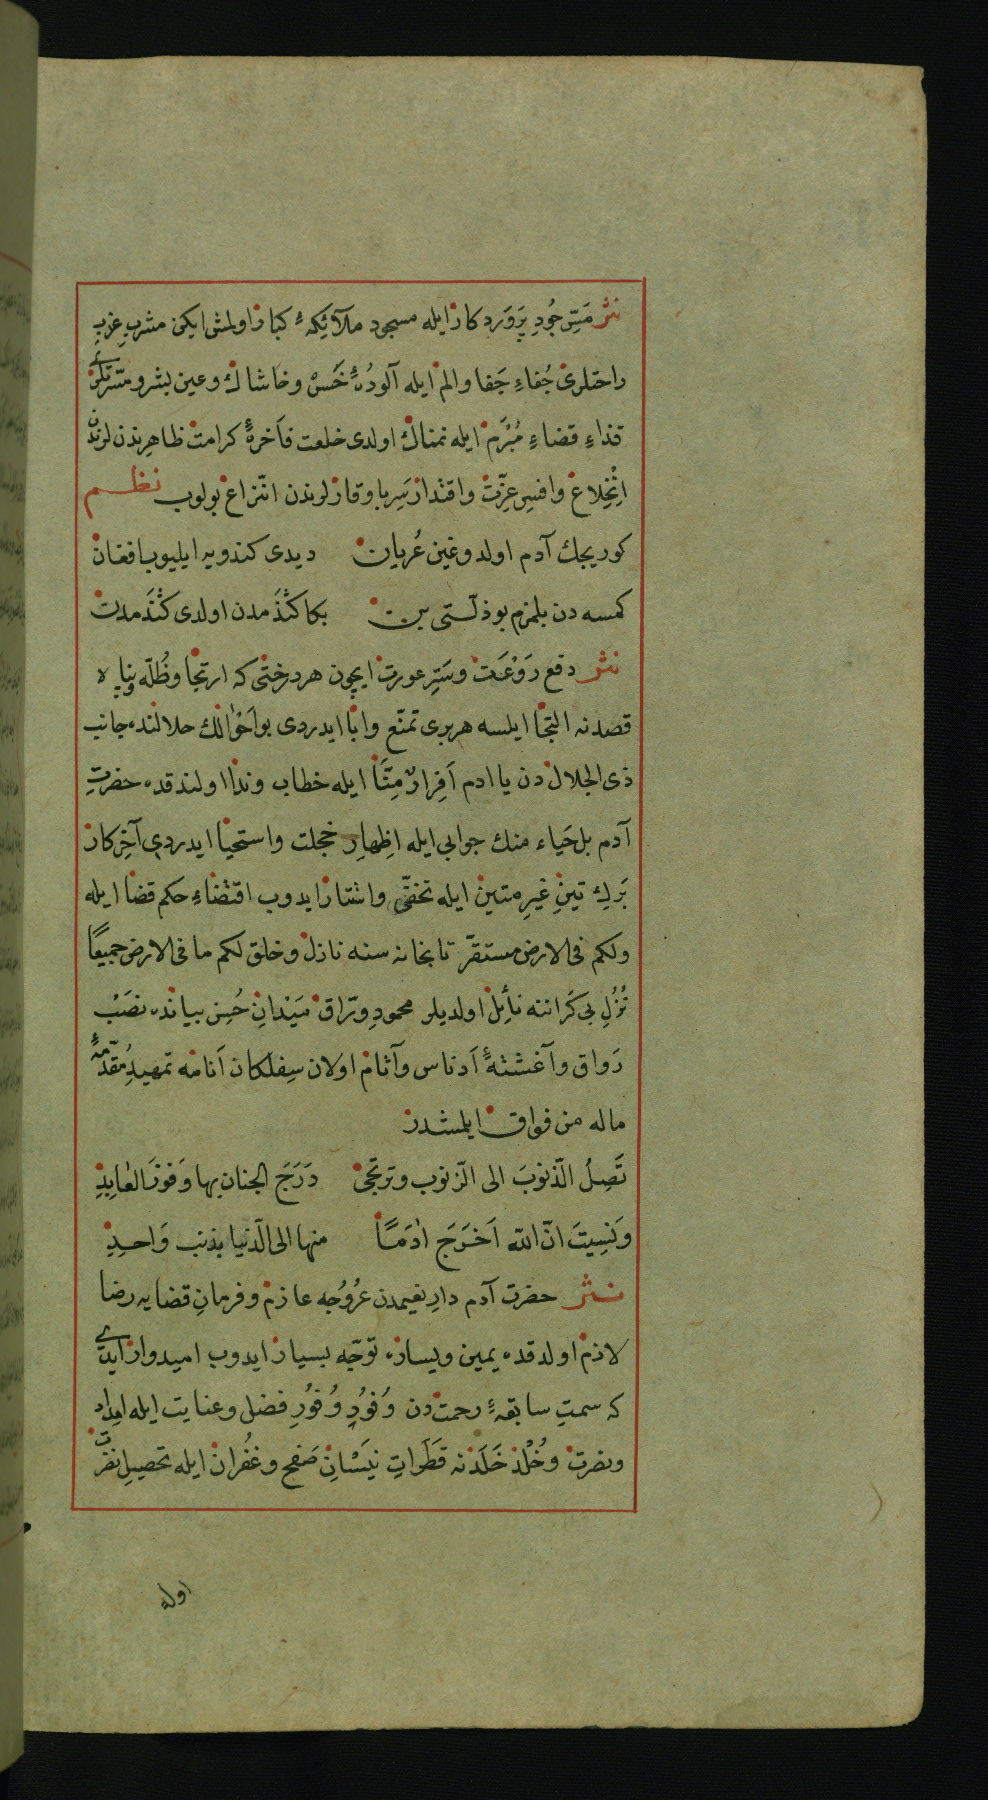 نثر مَسِّ جُودِ پَرْوَردكار ایله مسجود ملآئكهٔ كبار اولمش ایكن مشرب عزب
راحتلری جُفاءِ جَفا والم ایله آلودهٔ خَسْ وخاشاك وعین بشر و مسرّتلری
قذاءِ قضاءِ مُبْرَم ایله نمناك اولدی خلعت فاخرهٔ كرامت ظاهرندن لرندن
اِنْخِلاع وافسِر عِزّت واقتدار سَرِ با وقارلرندن انتزاع بولوب نظم
كوریجك آدم اولدوغین عُریان دیدی كندویه ایلیوب افغان
كمسه دن بلمزم بو ذلّتی بن بكا كَنْدَمدن اولدی كَنْدَمدن
نثر دفع رَوْعَت وسَترِ عورت ایچون هر درختی كه ارتجا وظُلّه وپنایه
قصدنه التجا ایلسه هر بری تمنّع وابا ایدردی بو اَحْوالك خلالنده جانب
ذی الجلال دن یا ادم اَفِرارٌ مِنّا ایله خطاب وندا اولندقده حضرتِ
آدم بل حَیاء منك جوابی ایله اِظهارِ خجلت واستحیا ایدردی آخِر كار
بَركِ تینِ غیرِ متین ایله تخفّی واستتار ایدوب اقتضاءِ حكم قضا ایله
ولكم فی الارض مستقرّ تابخانه سنه نازل وخلق لكم ما فی الارض جمیعًا
نُزُلِ بی كَراننه نائِل اولدیلر محمودِ ورّاق مَیْدانِ حُسن بیانده نصَبْ
رَواق وآغشتهٔ اَدناس وآثام اولان سِفلكان اَنامه تمهیدِ مُقدّمهٔ
ماله من فواق ایلمشدر
تَصِلُ الذّنوبَ الی الذّنوب وترتجی دَرَجَ الجنان بها وَفوزَ العابِدِ
وَنَسِیتَ انّ اللّه اَخرَجَ اٰدَمًا منها الی الدّنیا بذنب وَاحدِ
نثر حضرت آدم دارِ نعیمدن عُرُوجه عازم وفرمانِ قضایه رضا
لازم اولدقده یمین ویساره توجّه بسیار ایدوب امیدوار ایدی
كه سمتِ سابقهٔ رحمت دن وُفودِ وُفورِ فضل وعنایت ایله امداد
ونصرت وخُلْد خَلَدنه قَطَراتِ نیَسْانِ صَفح وغُفران ایله تحصیل نضرت
اوله